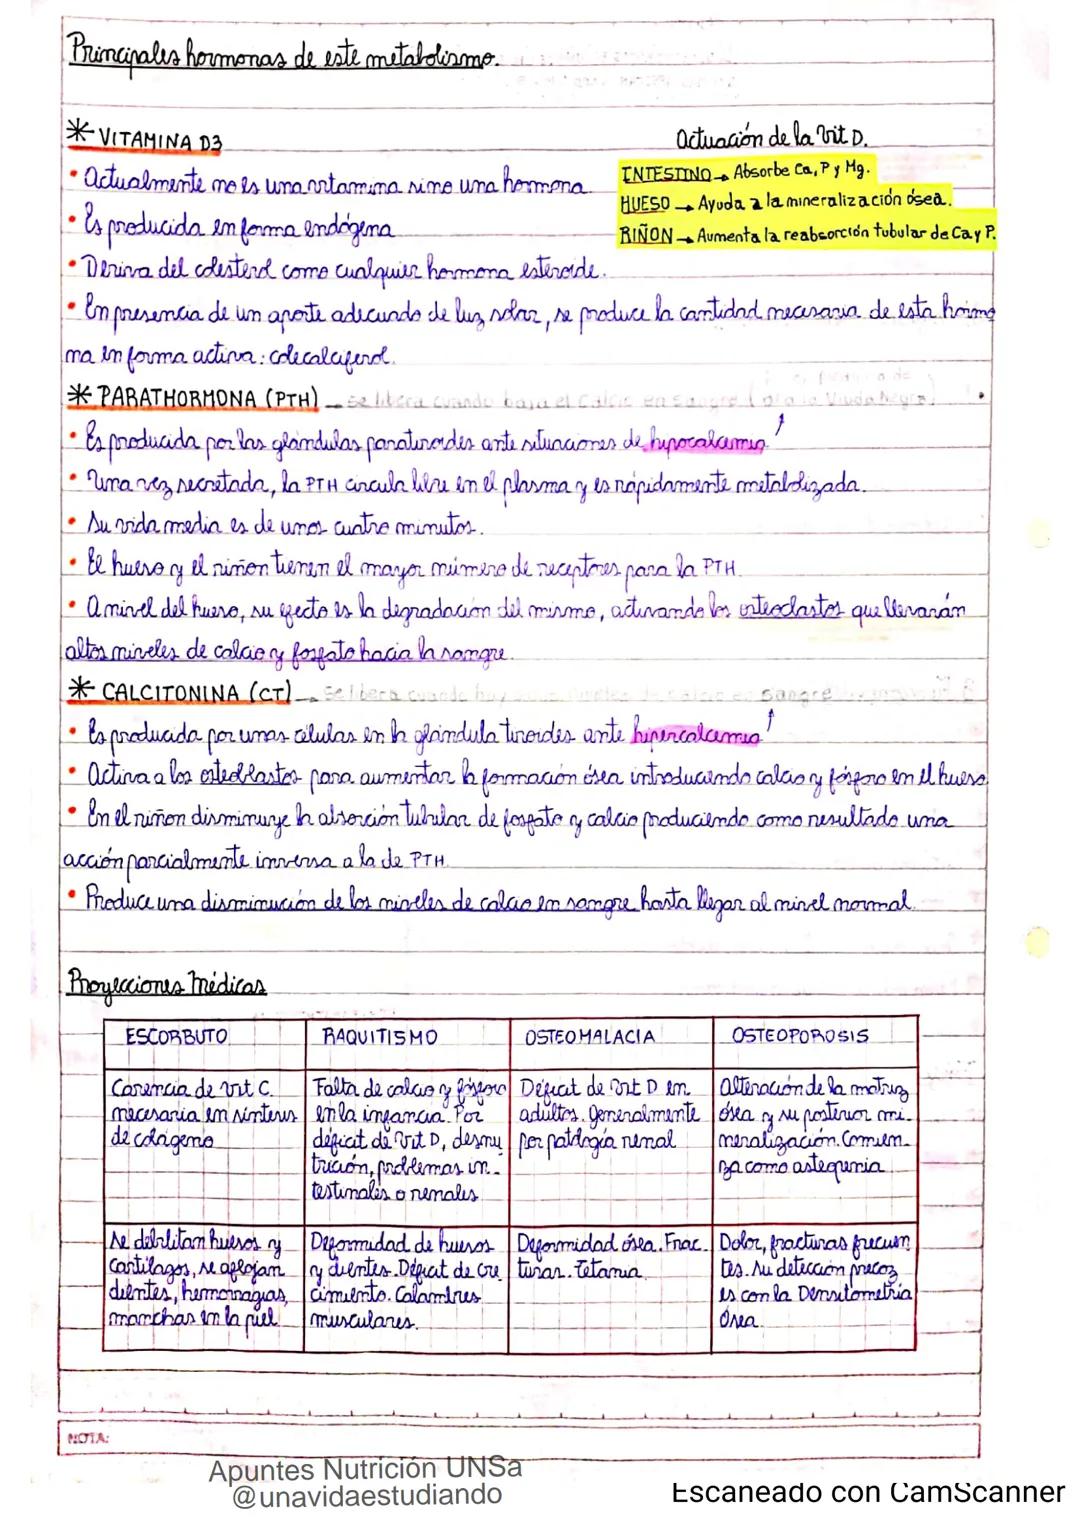 Principales hormonas de este metabolismo.
* VITAMINA D3
• Actualmente no es una vitamina sino una hormona.
• Es producida en forma endógena
• Deriva del colesterol como cualquier hormona esteroide.
• En presencia de un aporte adecuado de luz solar, se produce la cantidad necesaria de esta hormo
na en forma activa: colecalciferol.
Actuación de la Vit D.
INTESTINO → Absorbe Ca, P y Mg.
HUESO → Ayuda a la mineralización ósea.
RIÑON → Aumenta la reabsorción tubular de Ca y P.
* PARATHORMONA (PTH) → se libera cuando baja el Calcio en sangre
• Es producida por las glándulas paratiroides ante situaciones de hipocalcemia
• Una vez secretada, la PTH circula libre en el plasma y es rápidamente metabolizada.
• Su vida media es de unos cuatro minutos.
• El hueso y el riñon tienen el mayor número de receptores para la PTH.
• A nivel del hueso, su efecto es la degradación del mismo, activando los osteoclastos que llevarán
altos niveles de calcio y fosfato hacia la sangre.
* CALCITONINA (CT) → Se libera cuando hay niveles de calcio en sangre
• Es producida por unas células en la glándula tiroides ante hipercalcemia
• Activa a los osteoblastos para aumentar la formación ósea introduciendo calcio y fósforo en el hueso.
• En el riñon disminuye la absorción tubular de fosfato y calcio produciendo como resultado una
acción parcialmente inversa a la de PTH.
• Produce una disminución de los niveles de calcio en sangre hasta llegar al nivel normal.
Proyecciones Médicas
ESCORBUTO RAQUITISMO OSTEOMALACIA OSTEOPOROSIS
Carencia de vit C.
necesaria en síntesis
de colágeno
Falta de calcio y fósforo
en la infancia. Por
déficit de Vit D, desnu
trición, problemas in-
testinales o renales
Déficit de Vit D en
adultos. Generalmente
por patología renal
Alteración de la matriz
ósea y su posterior mi-
neralización. Comien-
za como osteopenia
Se debilitan huesos y
cartílagos, se aflojan
dientes, hemorragias,
manchas en la piel
Deformidad de huesos
y dientes. Déficit de cre
cimiento. Calambres
musculares.
Deformidad ósea. Frac-
turas. Tetania
Dolor, fracturas frecuen
tes. Su detección precoz
es con la Densitometría
Ósea
NOTA:
Apuntes Nutrición UNSa
@unavidaestudiando
Escaneado con CamScanner